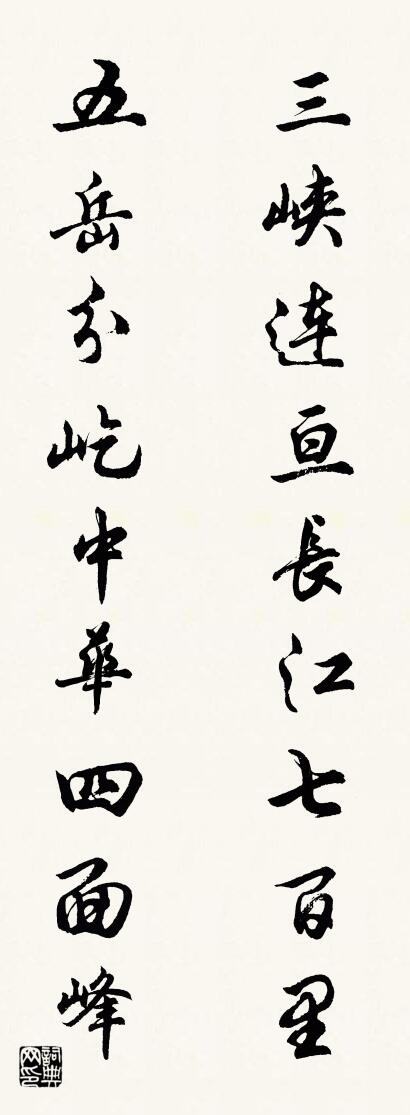 三峽連亘長江七百里
五岳分屹中華四面峰
詞典網印